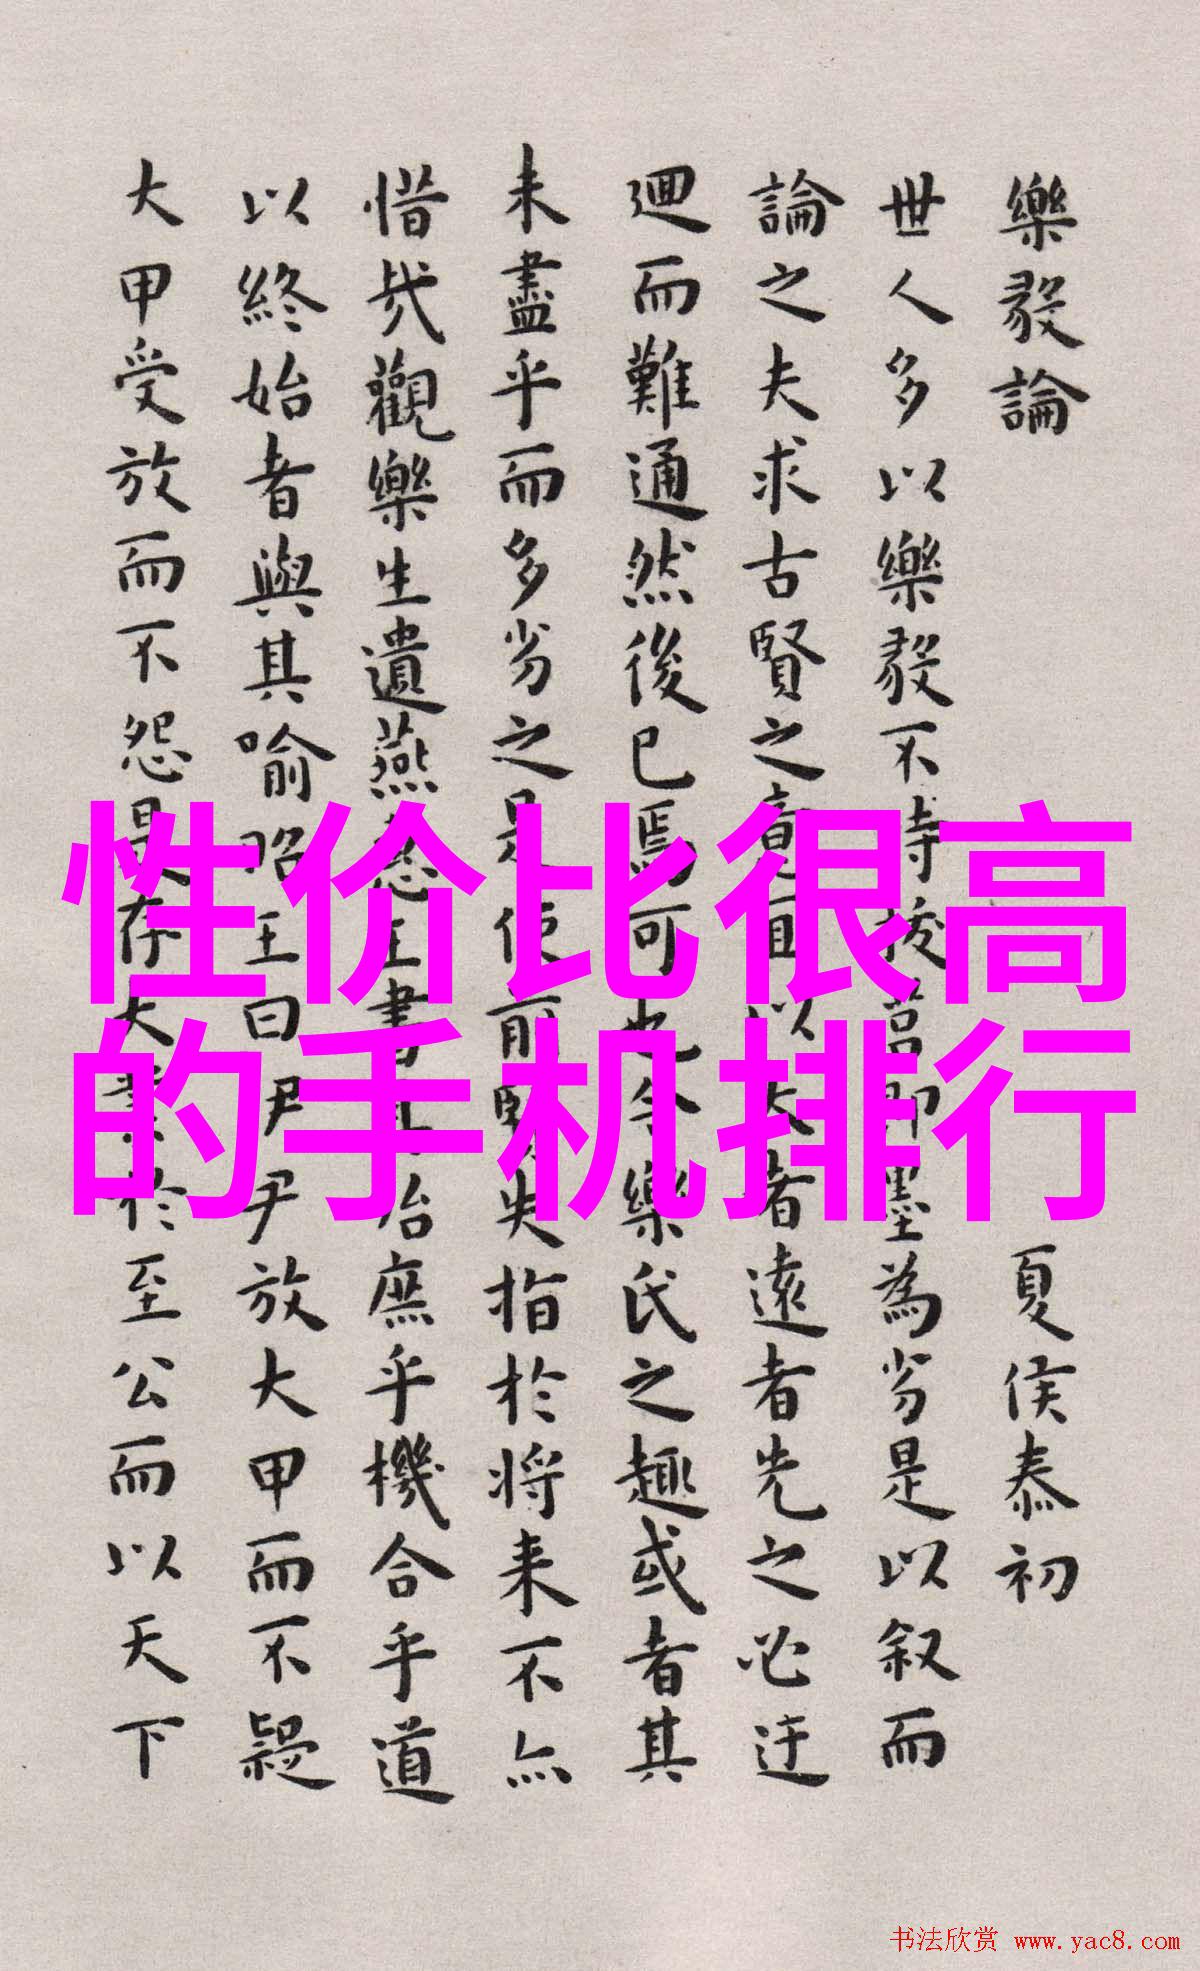 樂毅論
夏侯泰初
世人多以樂毅不時拔莒即墨為劣是以叙而
論之夫求古賢之意宜以大者遠者先之必迂
迴而難通然後已焉可也今樂氏之趣或者其
未盡乎而多劣之是使前賢失指於將来不亦
惜哉觀樂生遺燕惠王書其殆庶乎機合乎道
以終始者與其喻昭王曰伊尹放大甲而不疑
大甲受放而不怨是存大業於至公而以天下
性价比很高
的手机排行
书法欣赏 www.yac8.com